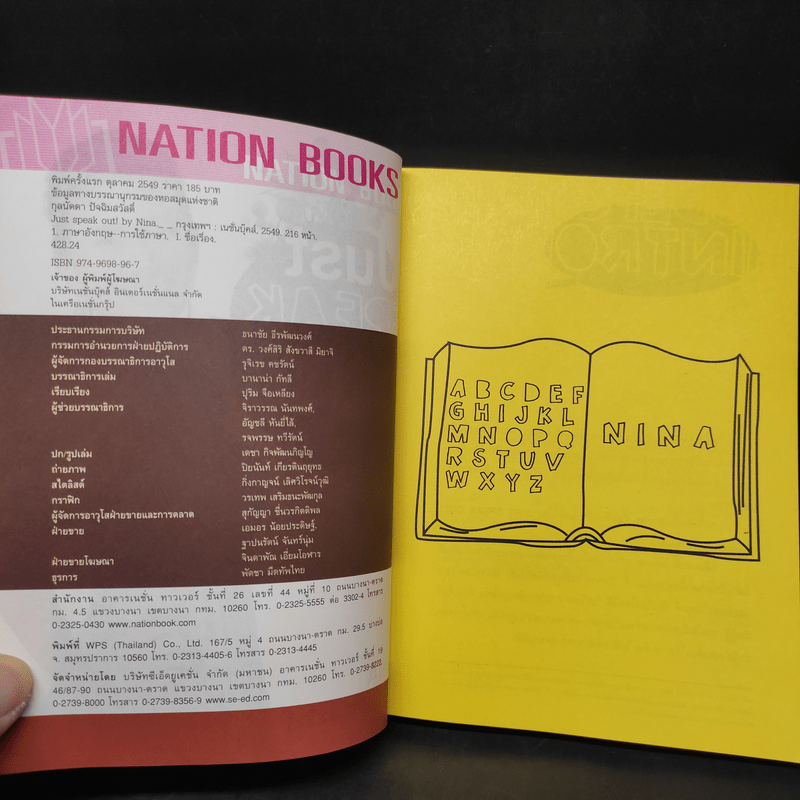 NATION BOOKS
พิมพ์ครั้งแรก ตุลาคม 2549 ราคา 185 บาท
ข้อมูลทางบรรณานุกรมของหอสมุดแห่งชาติ
กุลนัดดา ปัจฉิมสวัสดิ์
Just speak out! by Nina._ _ กรุงเทพฯ : เนชั่นบุ๊คส์, 2549. 216 หน้า.
1. ภาษาอังกฤษ--การใช้ภาษา. I. ชื่อเรื่อง.
428.24
ISBN 974-9698-96-7
เจ้าของ ผู้พิมพ์ผู้โฆษณา
บริษัทเนชั่นบุ๊คส์ อินเตอร์เนชั่นแนล จำกัด
ในเครือเนชั่นกรุ๊ป
ประธานกรรมการบริษัท ธนาชัย ธีรพัฒนวงศ์
กรรมการอำนวยการฝ่ายปฏิบัติการ ดร. วงศ์สิริ สังขวาสี มิยาจิ
ผู้จัดการกองบรรณาธิการอาวุโส รุจิเรข คชรัตน์
บรรณาธิการเล่ม บานาน่า กัทลี
เรียบเรียง ปุริม จือเหลียง
ผู้ช่วยบรรณาธิการ จิราวรรณ นันทพงศ์,
อัญชลี หันยี่ไส้,
รจพรรษ ทวีรัตน์
ปก/รูปเล่ม เดชา กิจพัฒนภิญโญ
ถ่ายภาพ ปิยนันท์ เกียรตินฤยุทธ
สไตลิสต์ กิ่งกาญจน์ เลิศวิโรจน์วุฒิ
กราฟิก วรเทพ เสริมธนะพัฒกุล
ผู้จัดการอาวุโสฝ่ายขายและการตลาด สุกัญญา ชื่นวรกิตติพล
ฝ่ายขาย เอมอร น้อยประดิษฐ์,
ฐาปนรัตน์ จันทร์นุ่ม
ฝ่ายขายโฆษณา จินดาพัณ เอี่ยมโอฬาร
ธุรการ พัดชา มีดทัพไทย
สำนักงาน อาคารเนชั่น ทาวเวอร์ ชั้นที่ 26 เลขที่ 44 หมู่ที่ 10 ถนนบางนา-ตราด
กม. 4.5 แขวงบางนา เขตบางนา กทม. 10260 โทร. 0-2325-5555 ต่อ 3302-4 โทรสาร
0-2325-0430 www.nationbook.com
พิมพ์ที่ WPS (Thailand) Co., Ltd. 167/5 หมู่ 4 ถนนบางนา-ตราด กม. 29.5 บางบ่อ
จ. สมุทรปราการ 10560 โทร. 0-2313-4405-6 โทรสาร 0-2313-4445
จัดจำหน่ายโดย บริษัทซีเอ็ดยูเคชั่น จำกัด (มหาชน) อาคารเนชั่น ทาวเวอร์ ชั้นที่ 19
46/87-90 ถนนบางนา-ตราด แขวงบางนา เขตบางนา กทม. 10260 โทร. 0-2739-8222,
0-2739-8000 โทรสาร 0-2739-8356-9 www.se-ed.com
A B C D E F
G H I J K L
M N O P Q
R S T U V
W X Y Z
NINA